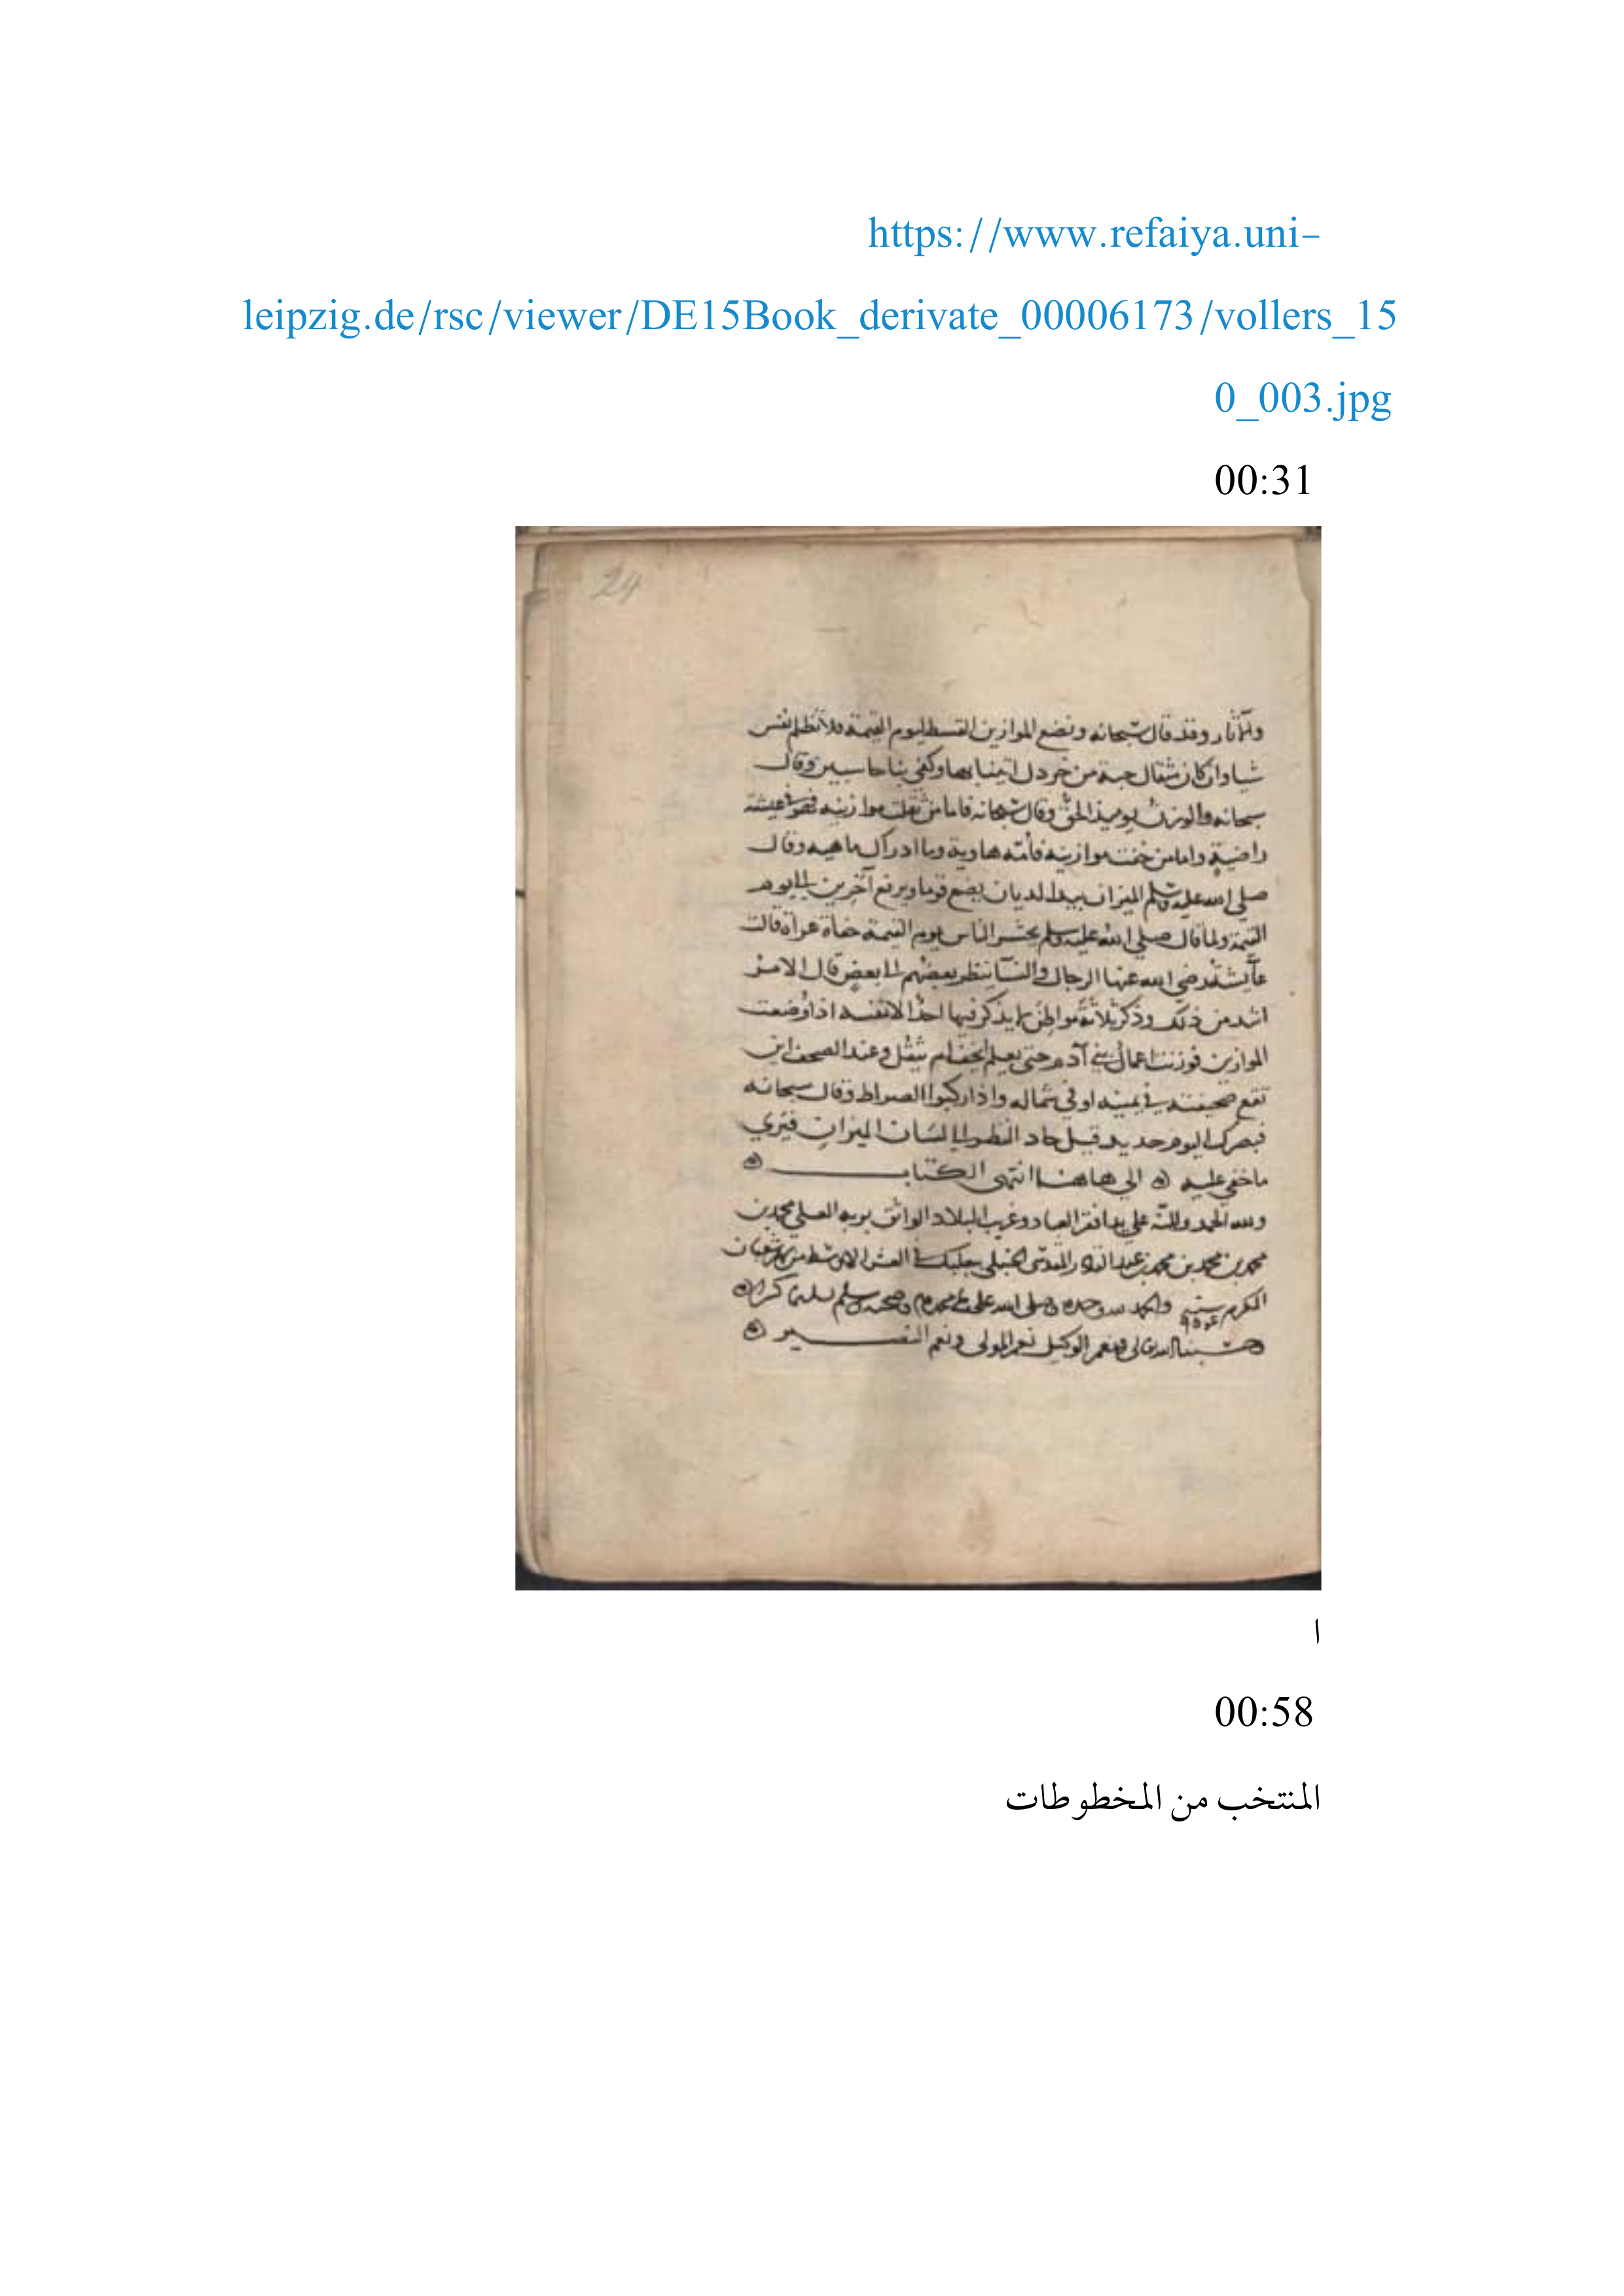 https://www.refaiya.uni-
leipzig.de/rsc/viewer/DE15Book_derivate_00006173/vollers_15
0_003.jpg
00:31
24
وقد قال سبحانه ونضع الموازين القسط ليوم القيمة فلا تظلم نفس
شيا وان كان مثقال حبة من خردل اتينا بها وكفى بنا حاسبين وقال
سبحانه والوزن يوميذ الحق وقال سبحانه فاما من ثقلت موازينه فهو في عيشة
راضية واما من خفت موازينه فأمه هاوية وما ادراك ماهيه وقال
صلى الله عليه وسلم الميزان بيد الديان يضع قوما ويرفع آخرين الى يوم
القيمة ولما قال صلى الله عليه وسلم يحشر الناس يوم القيمة حفاة عراة قالت
عائشة رضي الله عنها الرجال والنسآ ينظر بعضهم الى بعض قال الامر
اشد من ذلك وذكر ثلاثة مواطن لا يذكر فيها احد الا نفسه اذا وضعت
الموازين فوزنت اعمال بني آدم حتى يعلم ايخف ام يثقل وعند الصحف اين
تقع صحيفته في يمينه او في شماله واذا ركبوا الصراط وقال سبحانه
فبصرك اليوم حديد قيل حاد النظر الى لسان الميزان فيري
ما خفي عليه ه الى هاهنا انتهى الكتاب ه
ولله الحمد والمنة على يد افقر العباد وغريب البلاد الواثق بربه العلي محمد بن
محمد بن محمد بن محمد بن عبد القادر المقدسي الحنبلي ببعلبك في العشر الاوسط من شهر شعبان
المكرم سنة والحمد لله وحده وصلى الله على محمد وصحبه وسلم تسليما كثيرا ه
حسبنا الله تعالى ونعم الوكيل نعم المولى ونعم النصير ه
ا
00:58
المنتخب من المخطوطات